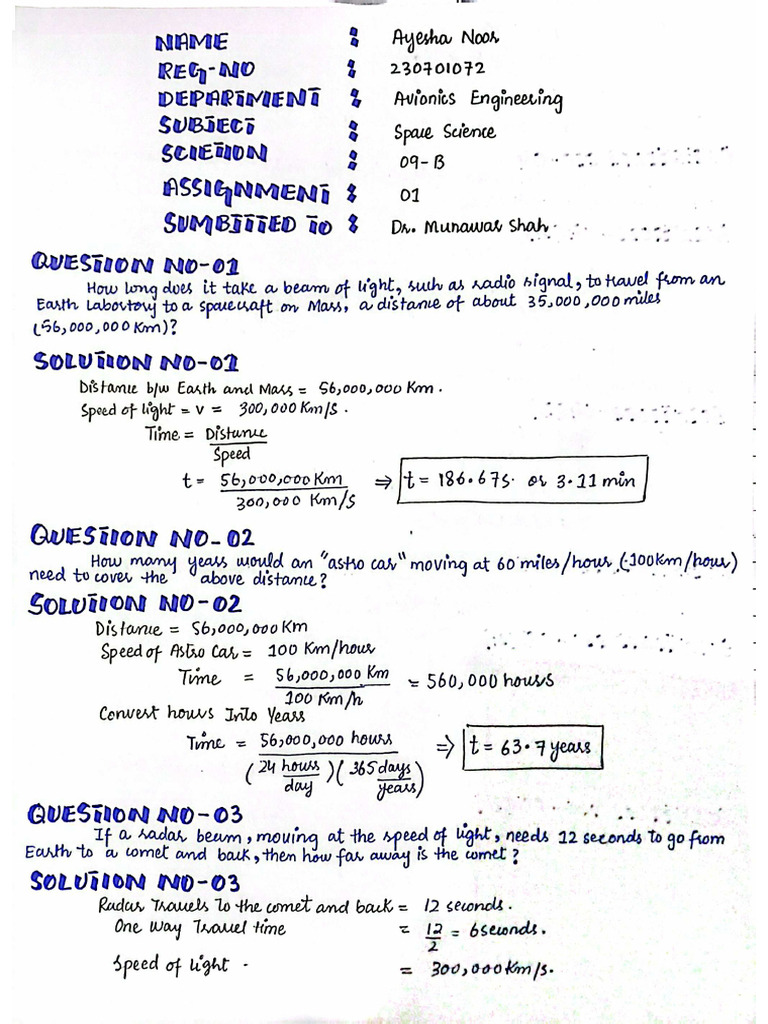 NAME : Ayesha Noor
REG-NO : 230701072
DEPARTMENT : Avionics Engineering
SUBJECT : Space Science
SCIETION : 09-B
ASSIGNMENT : 01
SUMBITTED TO : Dr. Munawar Shah
QUESTION NO-01
How long does it take a beam of light, such as radio signal, to travel from an
Earth Labortory to a spacecraft on Mass, a distance of about 35,000,000 miles
(56,000,000 Km)?
SOLUTION NO-01
Distance b/w Earth and Mass = 56,000,000 Km.
Speed of light = v = 300,000 Km/s.
Time = Distance / Speed
t = 56,000,000 Km / 300,000 Km/s ⇒ t = 186.67s. or 3.11 min
QUESTION NO-02
How many years would an "astro car" moving at 60 miles/hour (~100Km/hour)
need to cover the above distance?
SOLUTION NO-02
Distance = 56,000,000 Km
Speed of Astro Car = 100 Km/hour
Time = 56,000,000 Km / 100 Km/h = 560,000 hours
Convert hours Into Years
Time = 56,000,000 hours / (24 hours/day)(365 days/years) ⇒ t = 63.7 years
QUESTION NO-03
If a radar beam, moving at the speed of light, needs 12 seconds to go from
Earth to a comet and back, then how far away is the comet?
SOLUTION NO-03
Radar Travels To the comet and back = 12 seconds.
One Way Travel time = 12/2 = 6seconds.
Speed of Light. = 300,000Km/s.